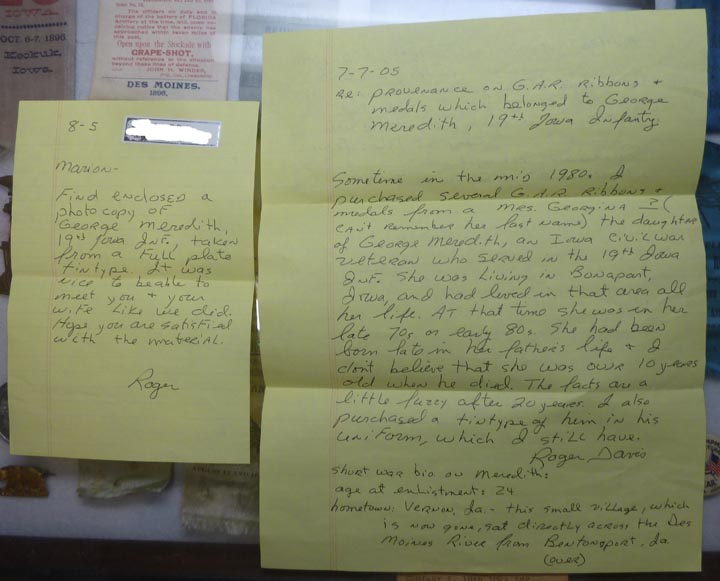 IOWA.
OCT. 6-7, 1896
Keokuk,
Iowa.
The officers on duty and in
charge of the battery of FLORIDA
Artillery at the time, will, upon re-
ceiving notice that the enemy has
approached within seven miles of
this post,
Open upon the Stockade with
GRAPE-SHOT,
without reference to the situation
beyond these lines of defence.
JOHN H. WINDER,
DES MOINES.
1896.
8-5
Marion-
Find enclosed a
photo copy of
George Meredith,
19th Iowa Inf., taken
from a full plate
tintype. It was
nice to be able to
meet you & your
wife like we did.
Hope you are satisfied
with the material.
Roger
7-7-05
re: provenance on G.A.R. ribbons &
medals which belonged to George
Meredith, 19th Iowa Infantry
Sometime in the mid 1980s I
purchased several G.A.R. ribbons &
medals from a Mrs. Georgina ? (
can't remember her last name) the daughter
of George Meredith, an Iowa civil war
veteran who served in the 19th Iowa
Inf. She was living in Bonapart,
Iowa, and had lived in that area all
her life. At that time she was in her
late 70s or early 80s. She had been
born late in her father's life & I
don't believe that she was over 10 years
old when he died. The facts are a
little fuzzy after 20 years. I also
purchased a tintype of him in his
uniform, which I still have.
Roger Davis
short war bio. on Meredith:
age at enlistment: 24
hometown: Vernon, Ia. - this small village, which
is now gone, sat directly across the Des
Moines River from Bentonsport, Ia.
(over)